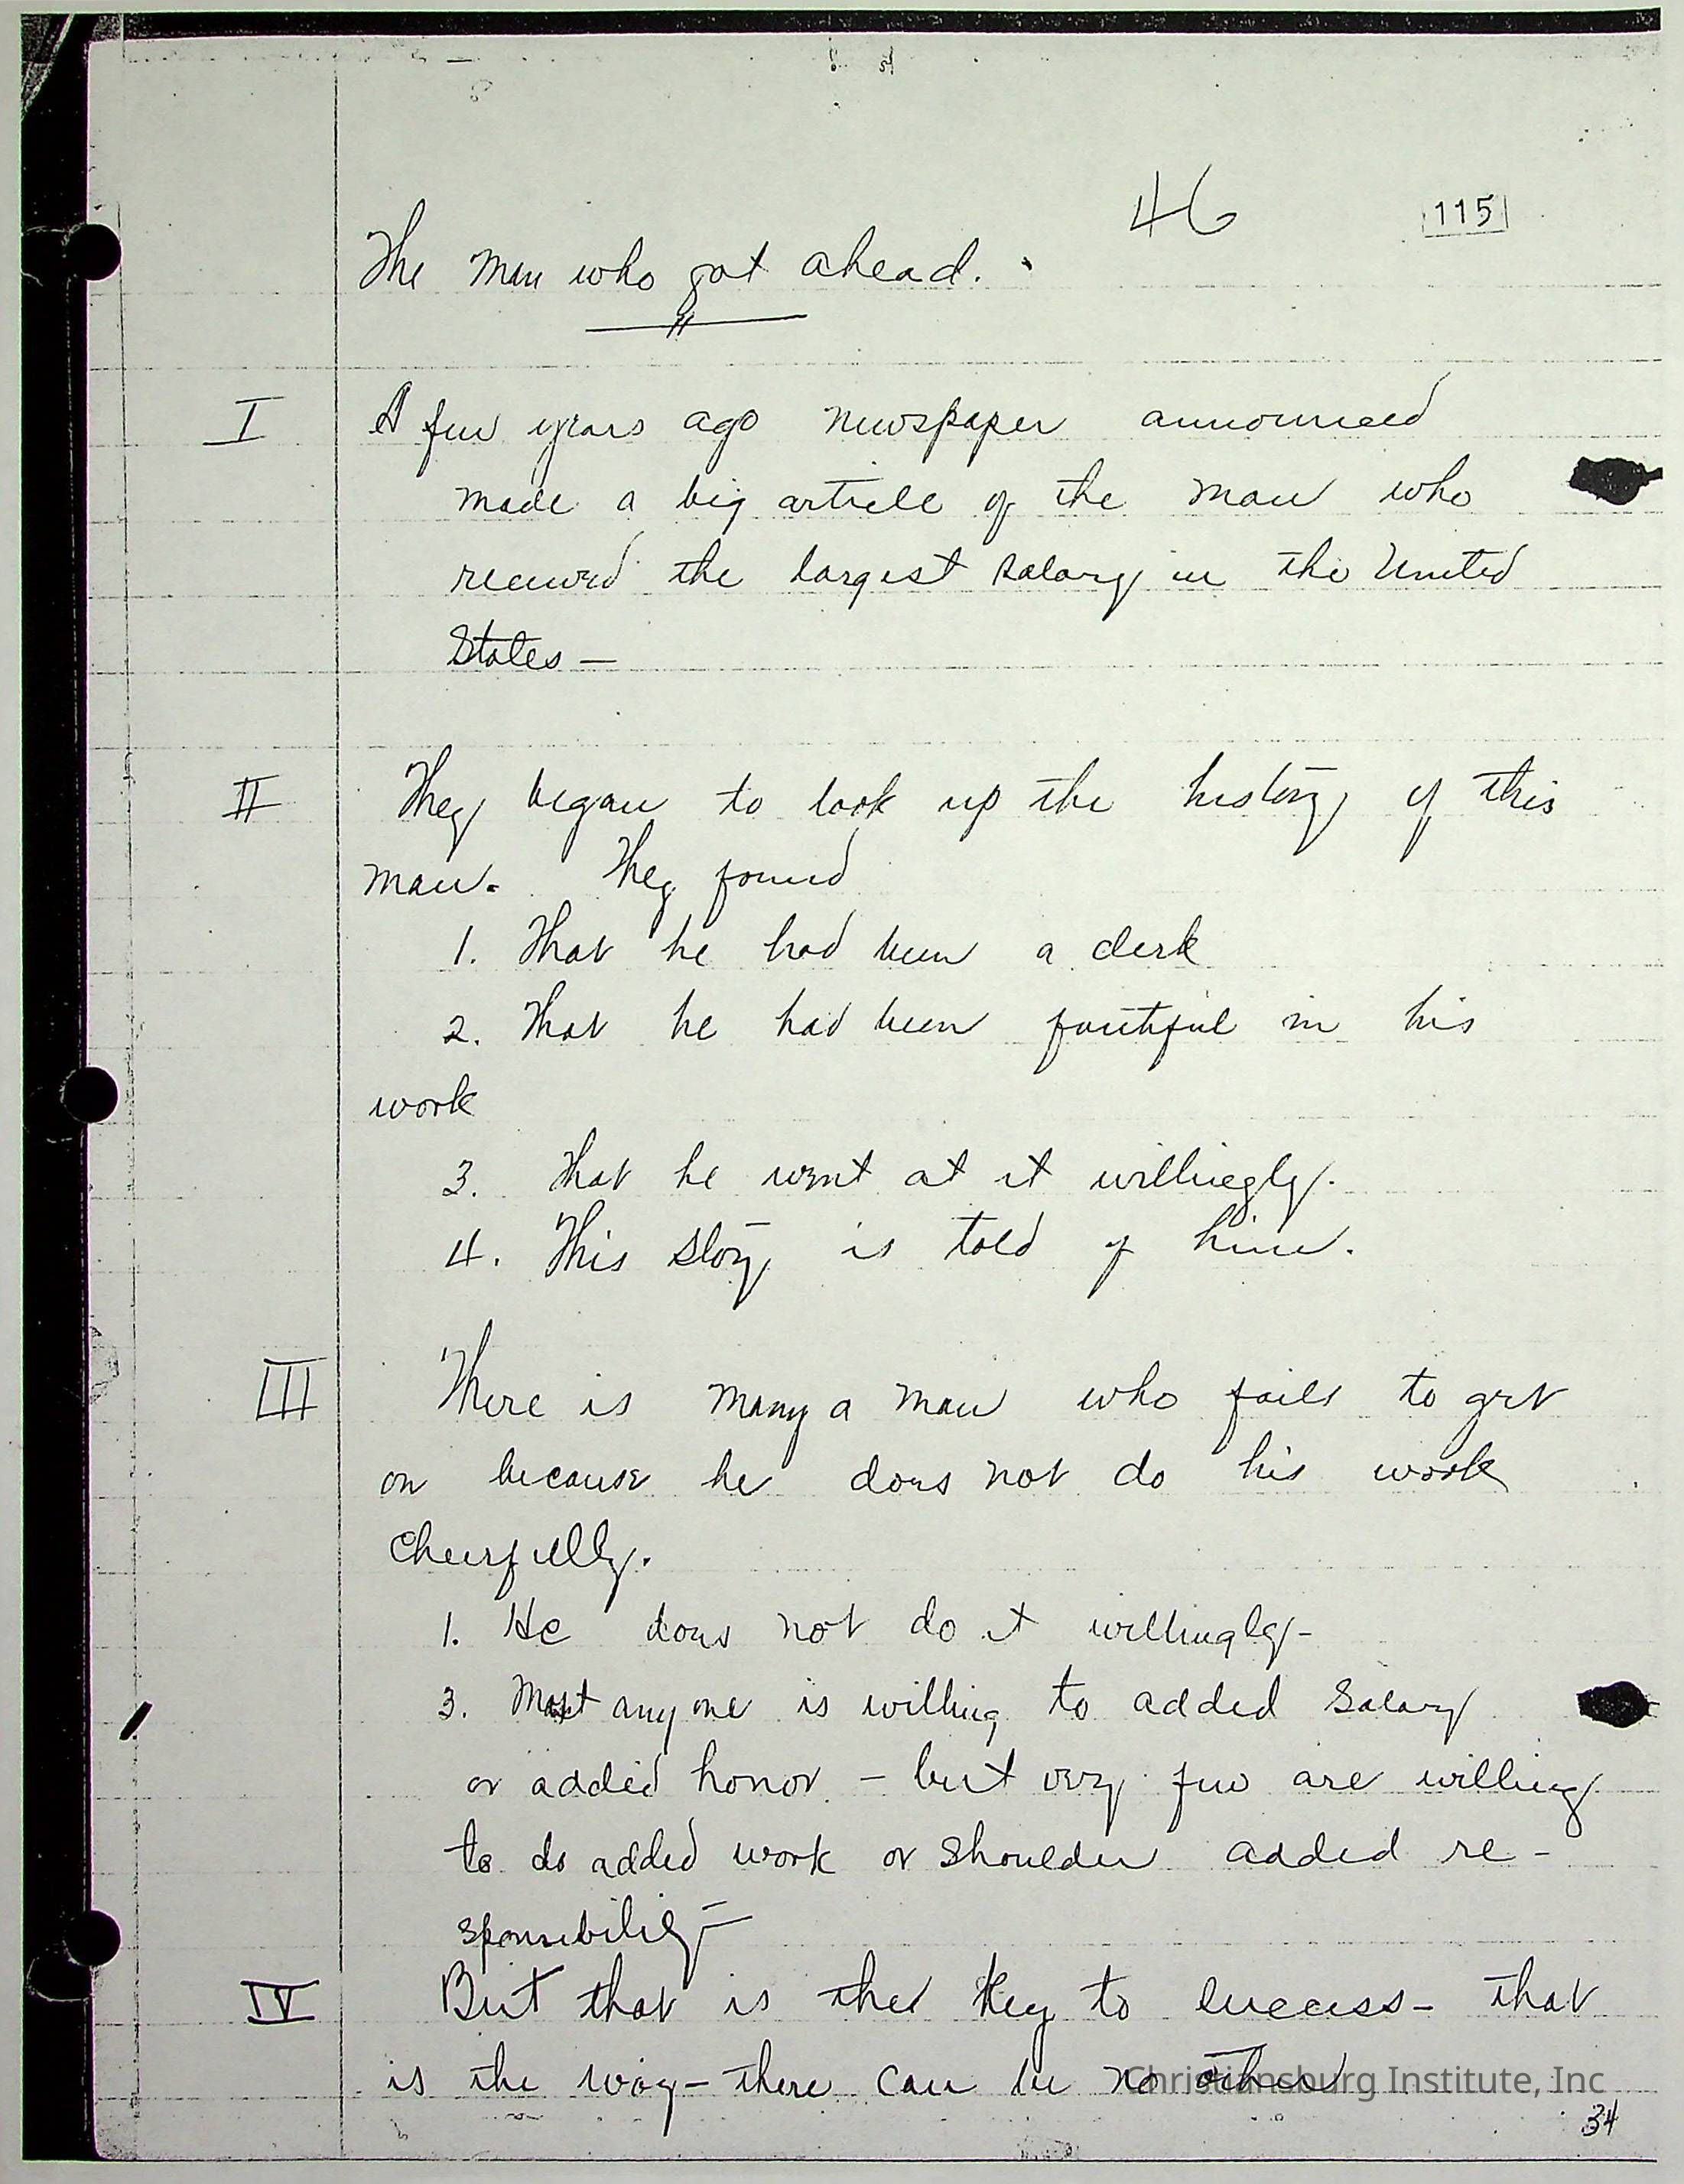 46
115
The man who got ahead.
I A few years ago newspaper announced
made a big article of the man who
received the largest salary in the United
States —
II They began to look up the history of this
man. They found
1. That he had been a clerk
2. That he had been faithful in his
work
3. That he went at it willingly.
4. This story is told of him.
III There is many a man who fails to get
on because he does not do his work
cheerfully.
1. He does not do it willingly -
3. Most any one is willing to added salary
or added honor - but very few are willing
to do added work or shoulder added re-
sponsibility -
IV But that is the key to success - that
is the way - there can be no other
Christiansburg Institute, Inc
34